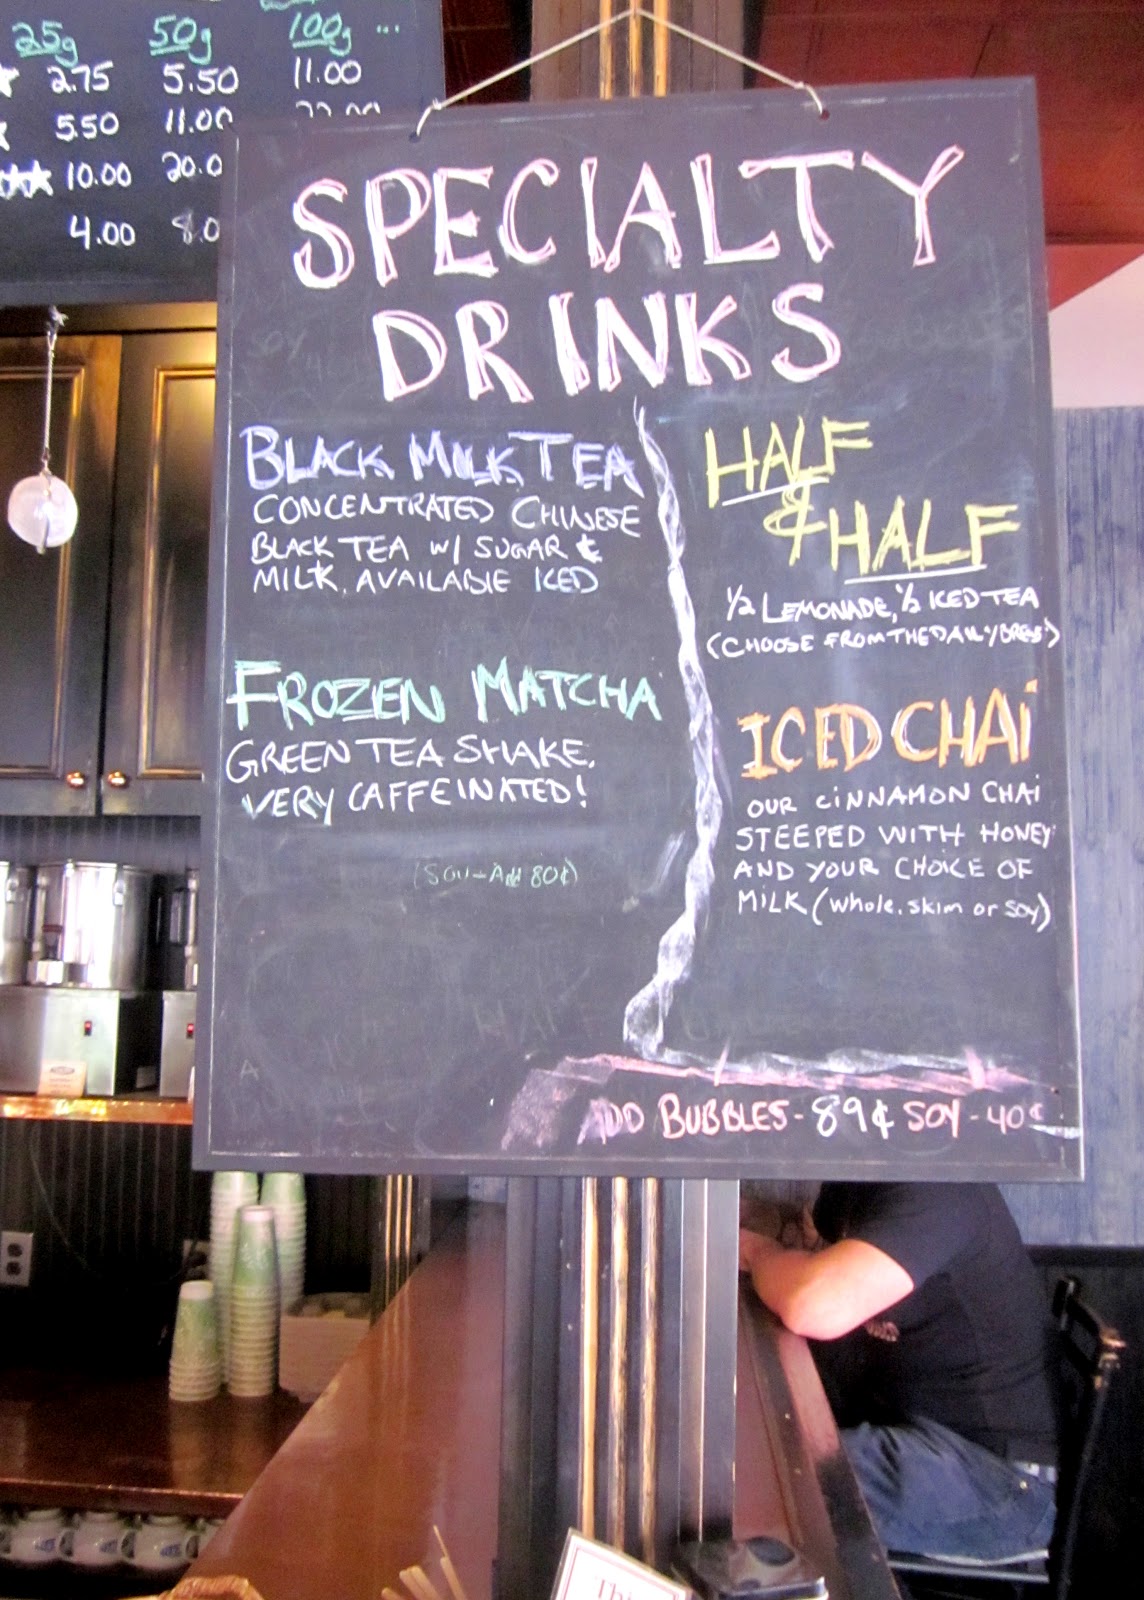 25g 50g 100g ...
2.75 5.50 11.00
5.50 11.00
10.00 20.0
4.00 8.0
SPECIALTY
DRINKS
BLACK MILK TEA
CONCENTRATED CHINESE
BLACK TEA W/ SUGAR &
MILK, AVAILABLE ICED
FROZEN MATCHA
GREEN TEA SHAKE.
VERY CAFFEINATED!
(SOY - Add 80¢)
HALF
& HALF
1/2 LEMONADE, 1/2 ICED TEA
(CHOOSE FROM THE DAILY BREWS)
ICED CHAi
OUR CiNNAMON CHAi
STEEPED WITH HONEY
AND YOUR CHOiCE OF
MiLK (whole, skim or soy)
ADD BUBBLES - 89¢ SOY - 40¢
Thi